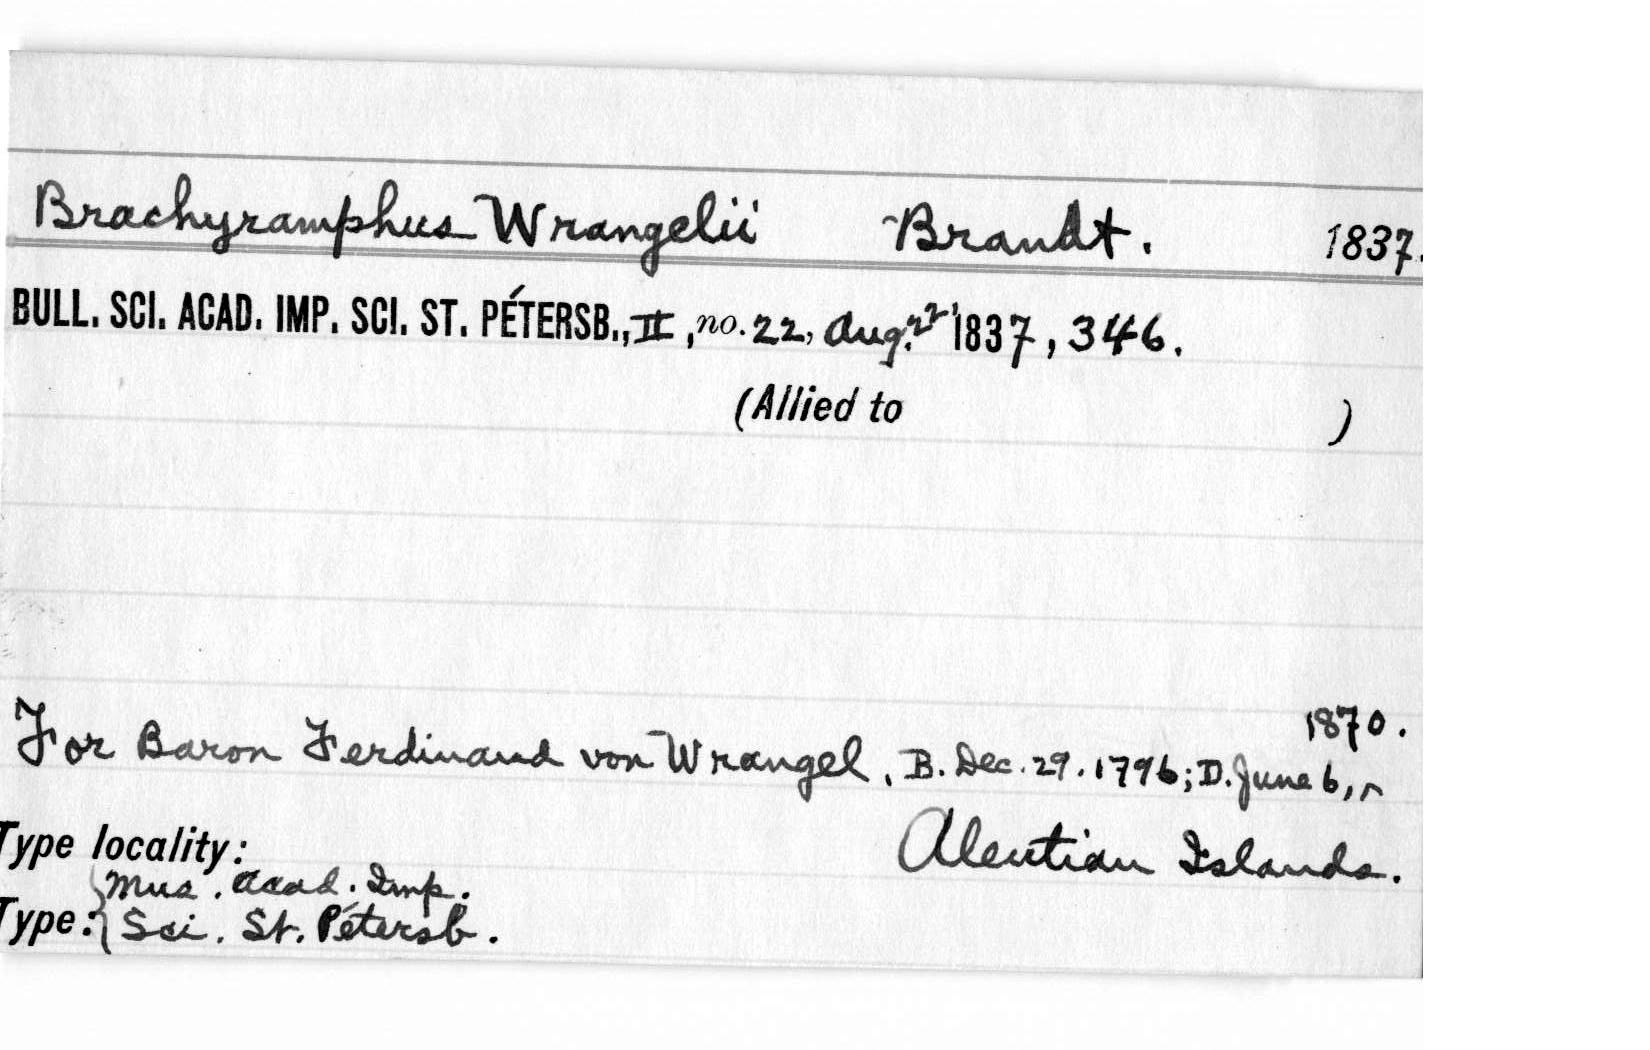 Brachyramphus Wrangelii Brandt. 1837.
BULL. SCI. ACAD. IMP. SCI. ST. PÉTERSB., II, no. 22, Aug. 22 1837, 346.
(Allied to )
1870.
For Baron Ferdinand von Wrangel, B. Dec. 29. 1796; D. June 6,
Type locality: Aleutian Islands.
Mus. Acad. Imp.
Type: Sci. St. Pétersb.